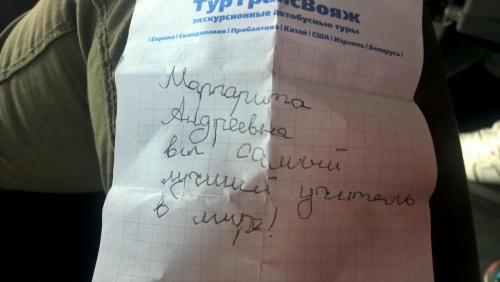 ТурТрансВояж
экскурсионные автобусные туры
| Европа | Скандинавия | Прибалтика | Китай | США | Израиль | Беларусь |
Маргарита
Андреевна
вы самый
лучший учитель
в мире!